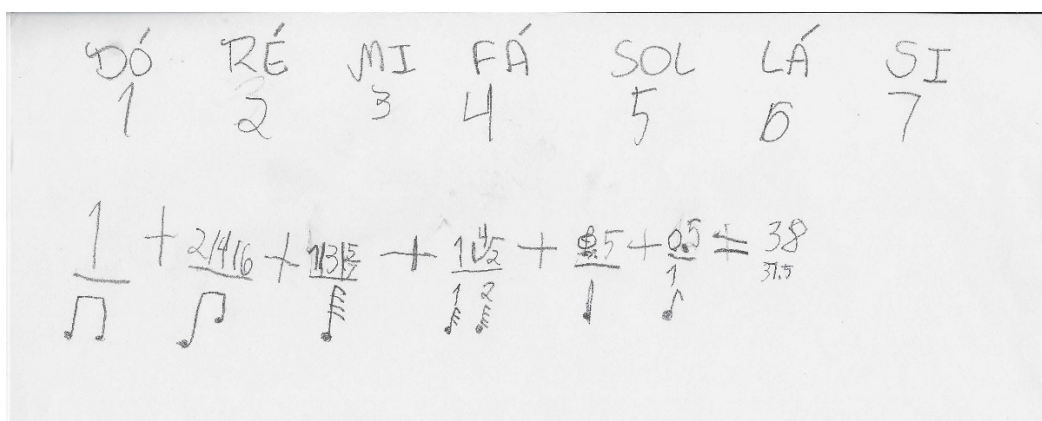 DÓ RÉ MI FÁ SOL LÁ SI
1 2 3 4 5 6 7
1 + 2/4/6 + 1/3/5/7 + 1 4/2 + .5 + 0.5 = 38
1 2 1 37.5